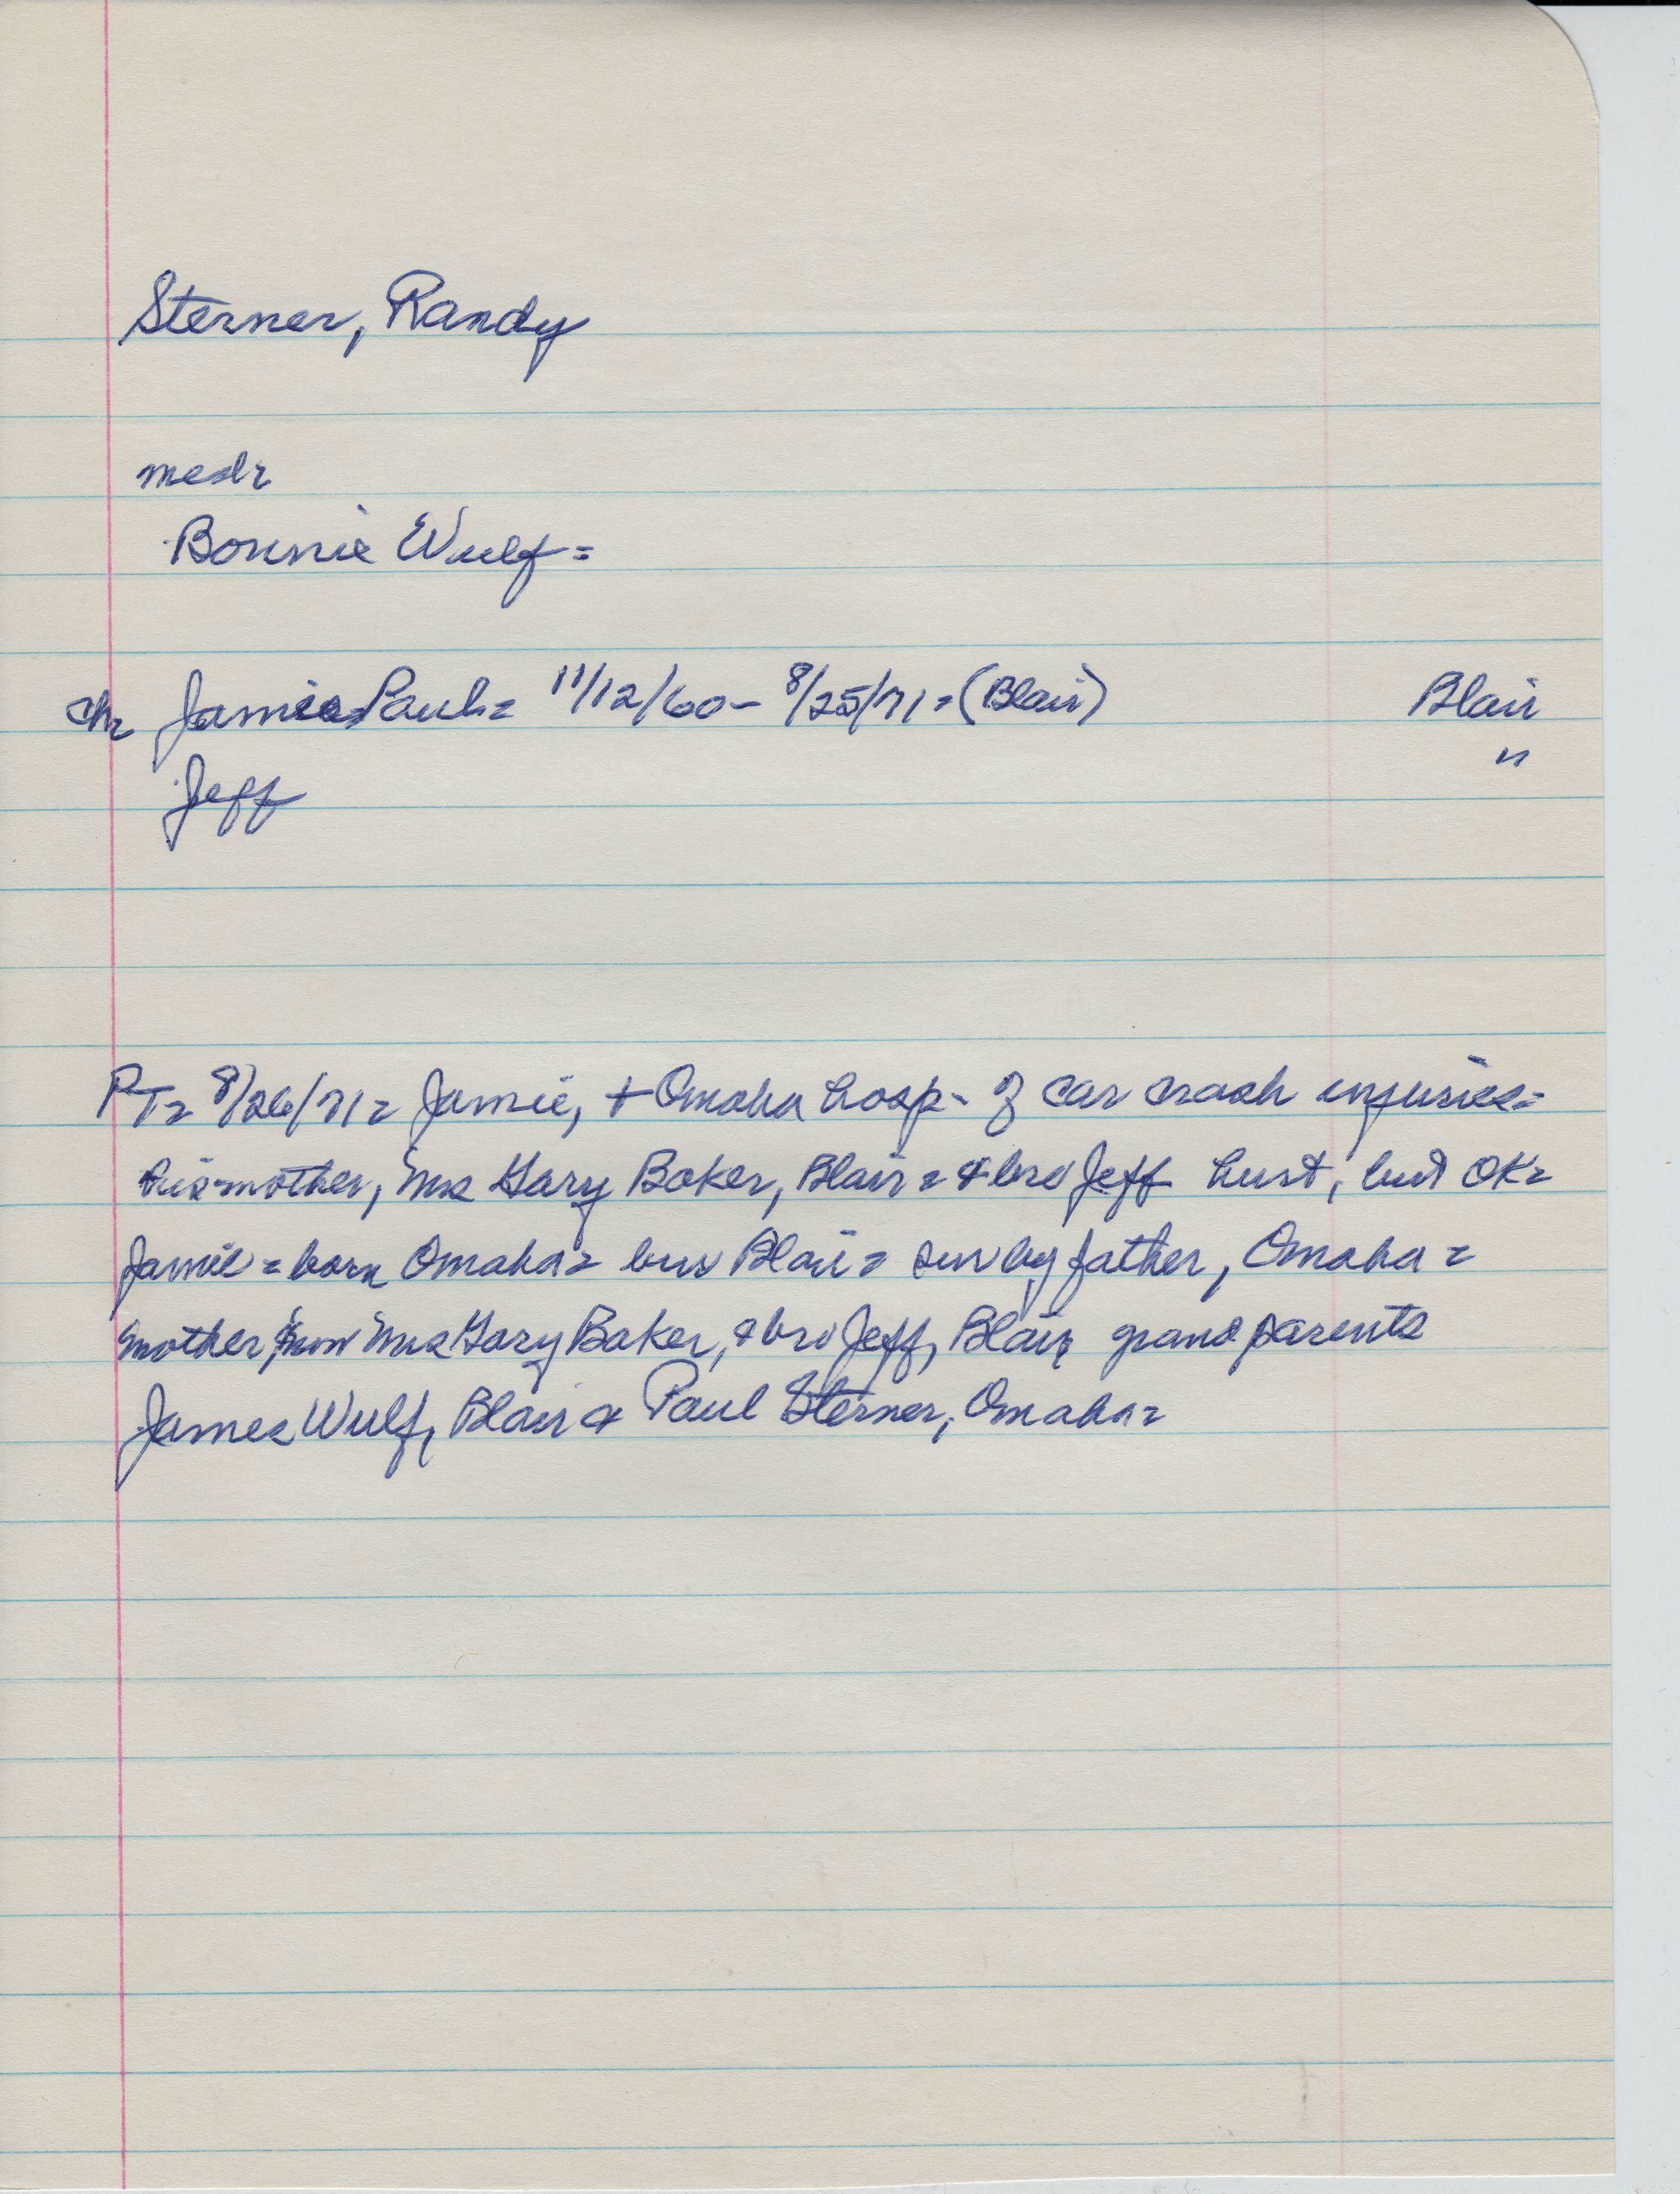 Sterner, Randy
med=
Bonnie Wulf=
ch= Jamie Paul= 11/12/60- 8/25/71=(Blair) Blair
Jeff "
PT= 8/26/71= Jamie, + Omaha hosp- of car crash injuries=
his mother, Mrs Gary Baker, Blair= & bro Jeff hurt, but OK=
Jamie=born Omaha= bur Blair= sur by father, Omaha=
mother, now Mrs Gary Baker, & bro Jeff, Blair, grandparents
James Wulf, Blair & Paul Sterner, Omaha=